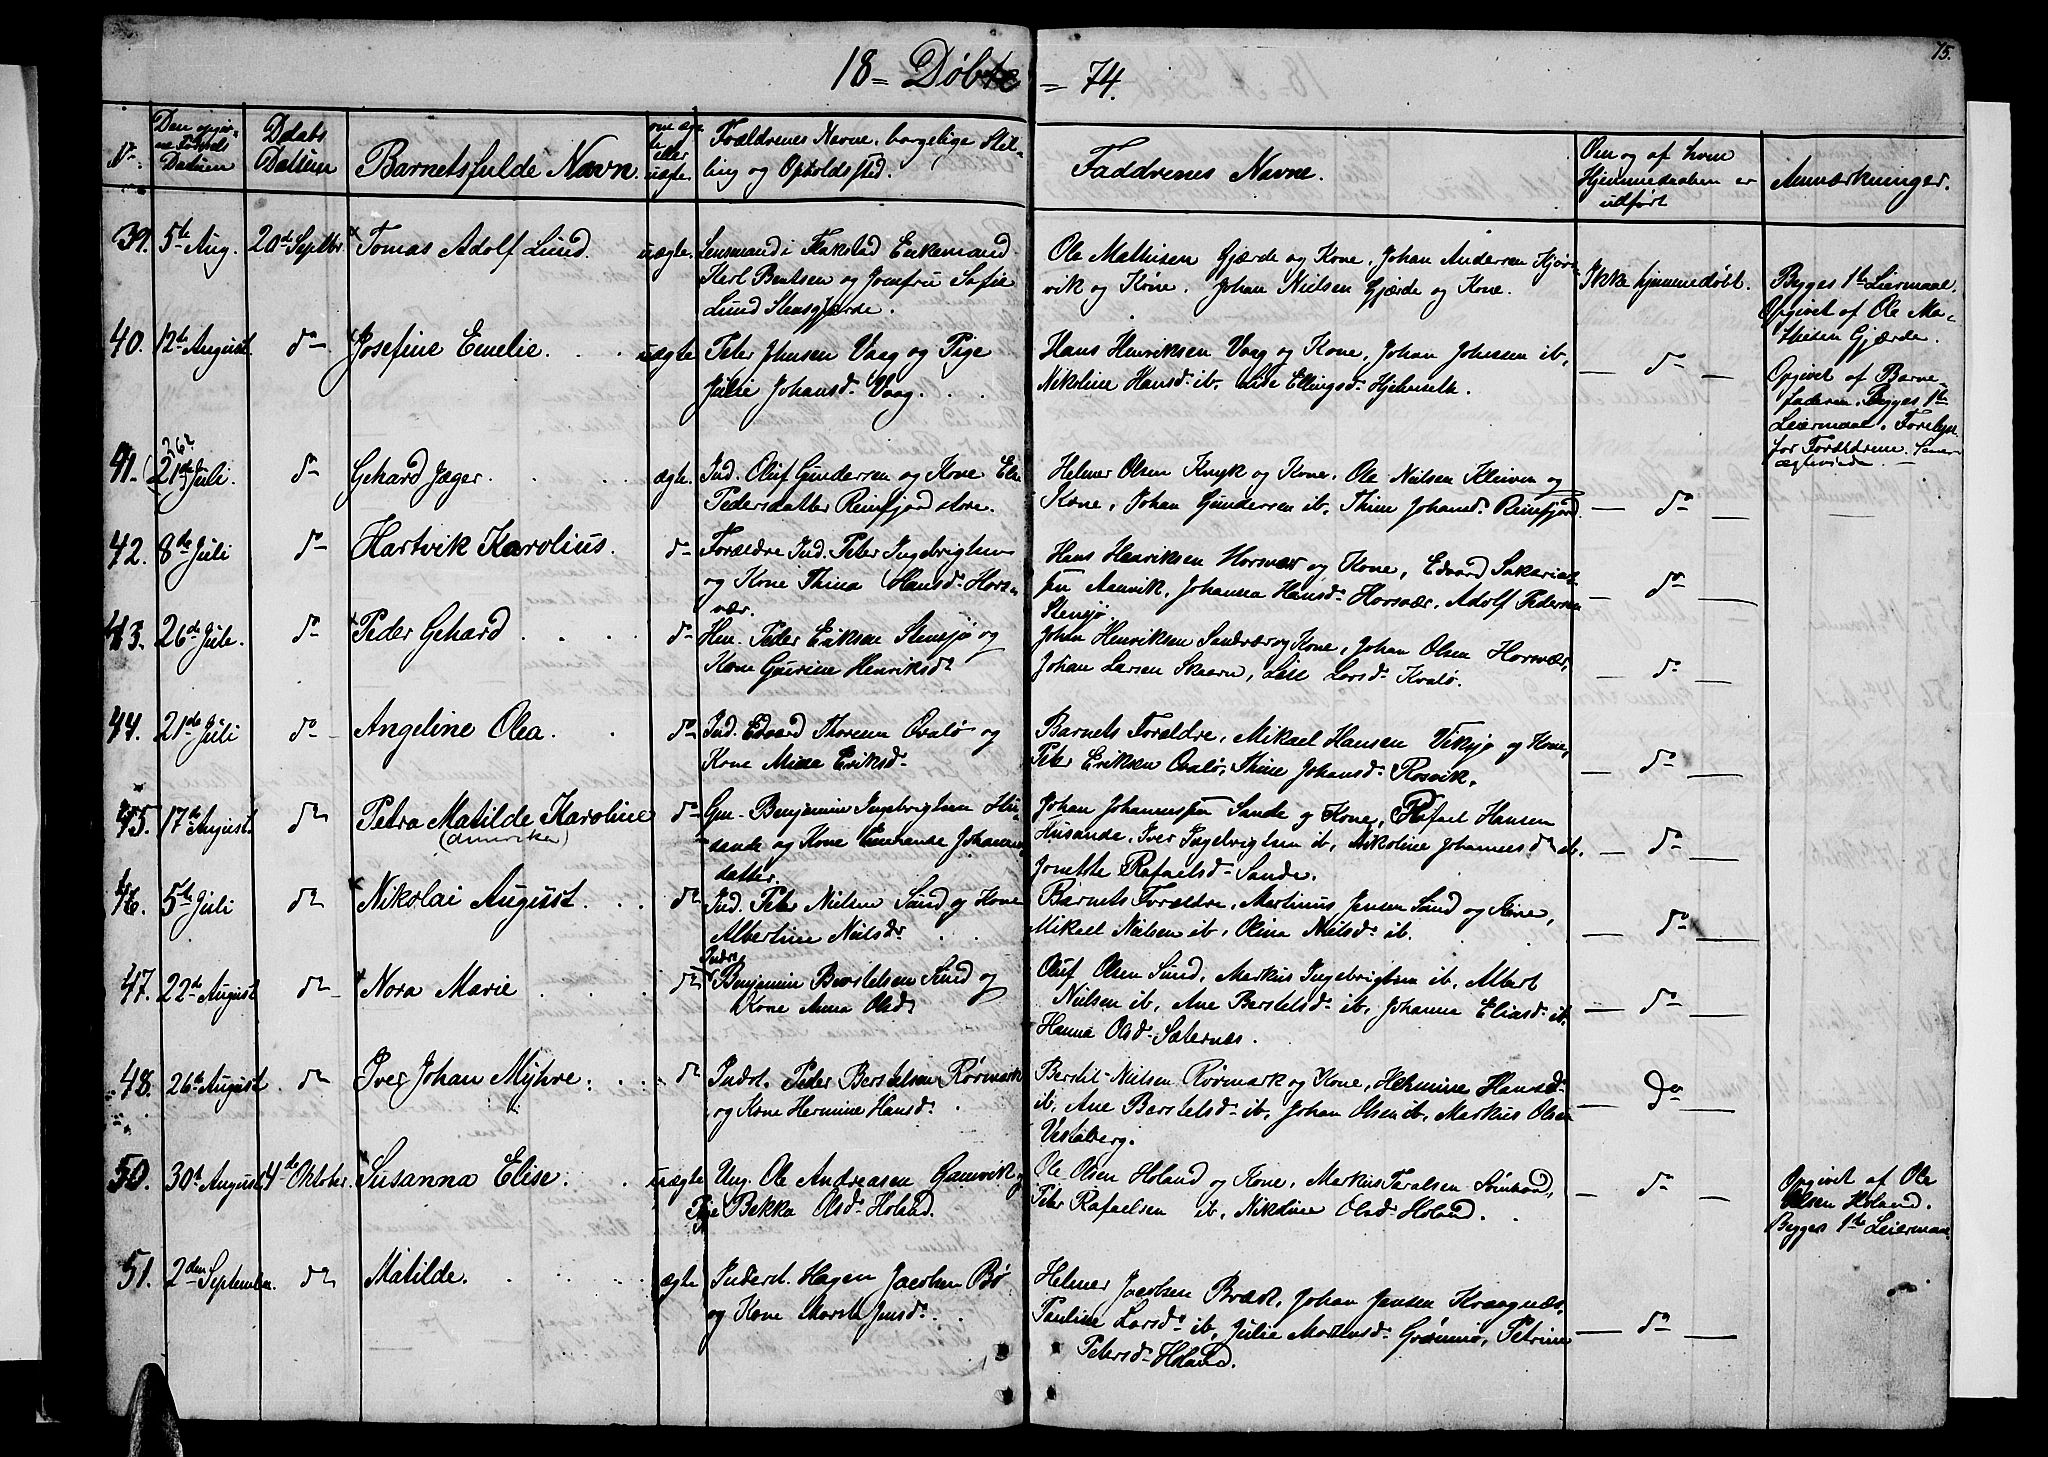 75.
18 = Døbte = 74.
No.
Den opgivne Fødsels Datum
Daabs Datum
Barnets fulde Navn.
om ægte eller uægte.
Forældrenes Navne, borgelige Stilling og Opholdsted.
Faddrenes Navne.
Om og af hvem Hjemmedaaben er udført
Anmærkninger.
39. 5te Aug. 20de Septbr Tomas Adolf Lund. uægte. Lensmand i Flakstad Enkemand
Karl Bentsen og Jomfru Sofie
Lund Stensgjærde.
Ole Mathisen Gjærde og Kone, Johan Andersen
vik og Kone. Johan Nielsen Gjærde og Kone.
Ikke hjemmedøbt.
Begges 1te Leiermaal.
Opgivet af Ole Ma-
thisen Gjærde.
40. 12te August. do Josefine Emelie. uægte Peter Johnsen Vaag og Pige
Julie Johansd. Vaag.
Hans Henriksen Vaag og Kone, Johan Johnsen ib,
Nikoline Hansd. ib. Lise Ellingsd.
do
Opgivet af Barne-
faderen. Begges 1te
Leiermaal.
for Forældrene.
41. 26? (21de Juli. do Gehard Jæger. ægte. Ind. Oluf Gundersen og Kone
Pedersdatter Reinfjord store.
Helmer Olsen Knyk og Kone, Ole Nielsen Kleiven og
Kone, Johan Gundersen ib, Thine Johansd. Reinfjord.
do
42. 8de Juli do Hartvik Karolius. do Forældre Ind. Peter Ingebrigtsen
og Kone Thina Hansd. Hors-
vær.
Hans Henriksen Horsvær og Kone, Edvard Sakarias-
sen Aanvik, Johanna Hansd. Horsvær, Adolf Pedersen
Stensjø.
do
43. 26de Juli. do Peder Gehard do Hm. Peder Eriksen Stensjø og
Kone Gurine Henriksd.
Johan Henriksen Sandvær og Kone, Johan Olsen Horsvær,
Johan Larsen Skaarn, Lise Larsd. Kvalø.
do
44. 21de Juli do Angeline Olea. do Ind. Edvard Thoresen Qvalø og
Kone Mina Eriksd.
Barnets Forældre, Mikael Hansen Viksjø og Kone,
Peter Eriksen Qvalø, Thine Johansd. Rosvik.
do
45. 17de August. do Petra Matilde Karoline do Gm. Benjamin Ingebrigtsen Hu-
sande og Kone Johannes-
datter.
Johan Johannessen Sande og Kone, Rafael Hansen
Husande, Iver Ingebrigtsen ib, Nikoline Johannesd. ib.
Jonette Rafaelsd. Sande.
do
46. 5te Juli do Nikolai August. do Ind. Peter Nielsen Sund og Kone
Albertine Nielsd.
Barnets Forældre, Martinus Jensen Sund og Kone,
Mikael Nielsen ib, Olina Nielsd. ib.
do
47. 22de August do Nora Marie do Indst. Benjamin Berstelsen Sund og
Kone Anna Olsd.
Oluf Olsen Sund, Markus Ingebrigtsen ib, Albert
Nielsen ib, Ane Berstelsd. ib, Johanna Eliasd. ib.
Hanna Olsd. Sæternes.
do
48. 26de August do Iver Johan Myhre. do Indst. Peder Berstelsen Rørmark
og Kone Hermine Hansd.
Berstil Nielsen Rørmark og Kone, Hermine Hansd.
ib, Ane Berstelsd. ib, Johan Olsen ib, Markus Olsen
Vestaberg.
Do
50. 30te August 4de Oktober. Susanna Elise. uægte Ung. Ole Andreasen Gamvik og
Pige Bekka Olsd. Holand.
Ole Olsen Holand og Kone, Markus
Peter Rafaelsen ib, Nikoline Olsd. Holand.
do
Opgivet af Ole
Olsen Holand.
Begges 1te Leiermaal.
51. 2den September. do Matilde. ægte Inderst. Hagen Jacobsen Bø
og Kone
Helmer Jacobsen Bræk, Johan Jensen Kraagnæs,
Pauline Larsd. ib, Julie Mortensd. Grønnø, Petrine
Petersd. Holand.
do